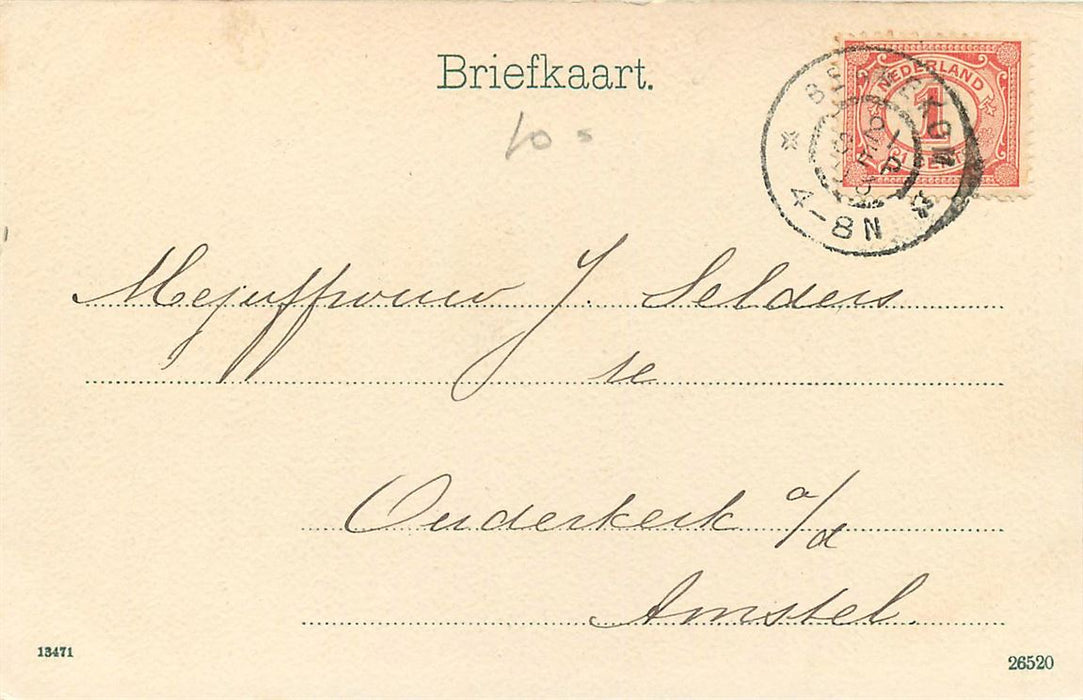 Briefkaart.
10 =
NEDERLAND
1
CENT
4-8N
Mejuffrouw J. Selders
te
Ouderkerk a/d
Amstel.
13471
26520